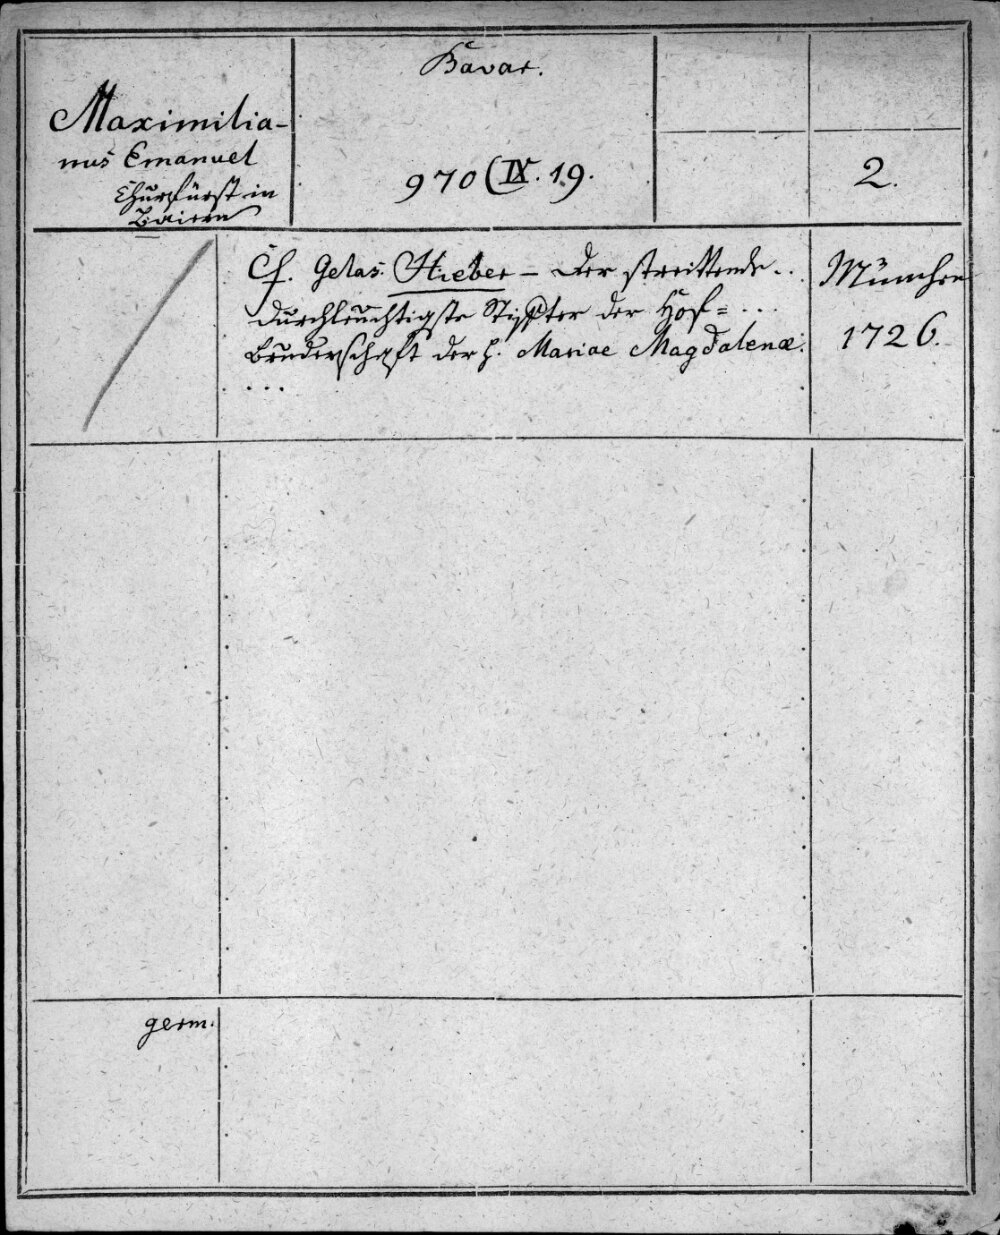 Maximilia-
nus Emanuel
Churfürst in
Baiern
Bavar.
970 (IX. 19.
2.
Cf. Gelas. Hieber – Der streittende..
durchleuchtigste Stiffter der Hof= ...
Bruderschafft der h. Mariae Magdalenæ.
...
München
1726.
germ.